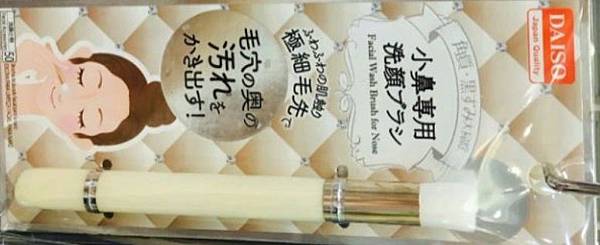 DAISO
Japan Quality
小鼻専用
洗顔ブラシ
Facial Wash Brush for Nose
ふわふわの肌触り
極細毛先で
毛穴の奥の
汚れを
かき出す!